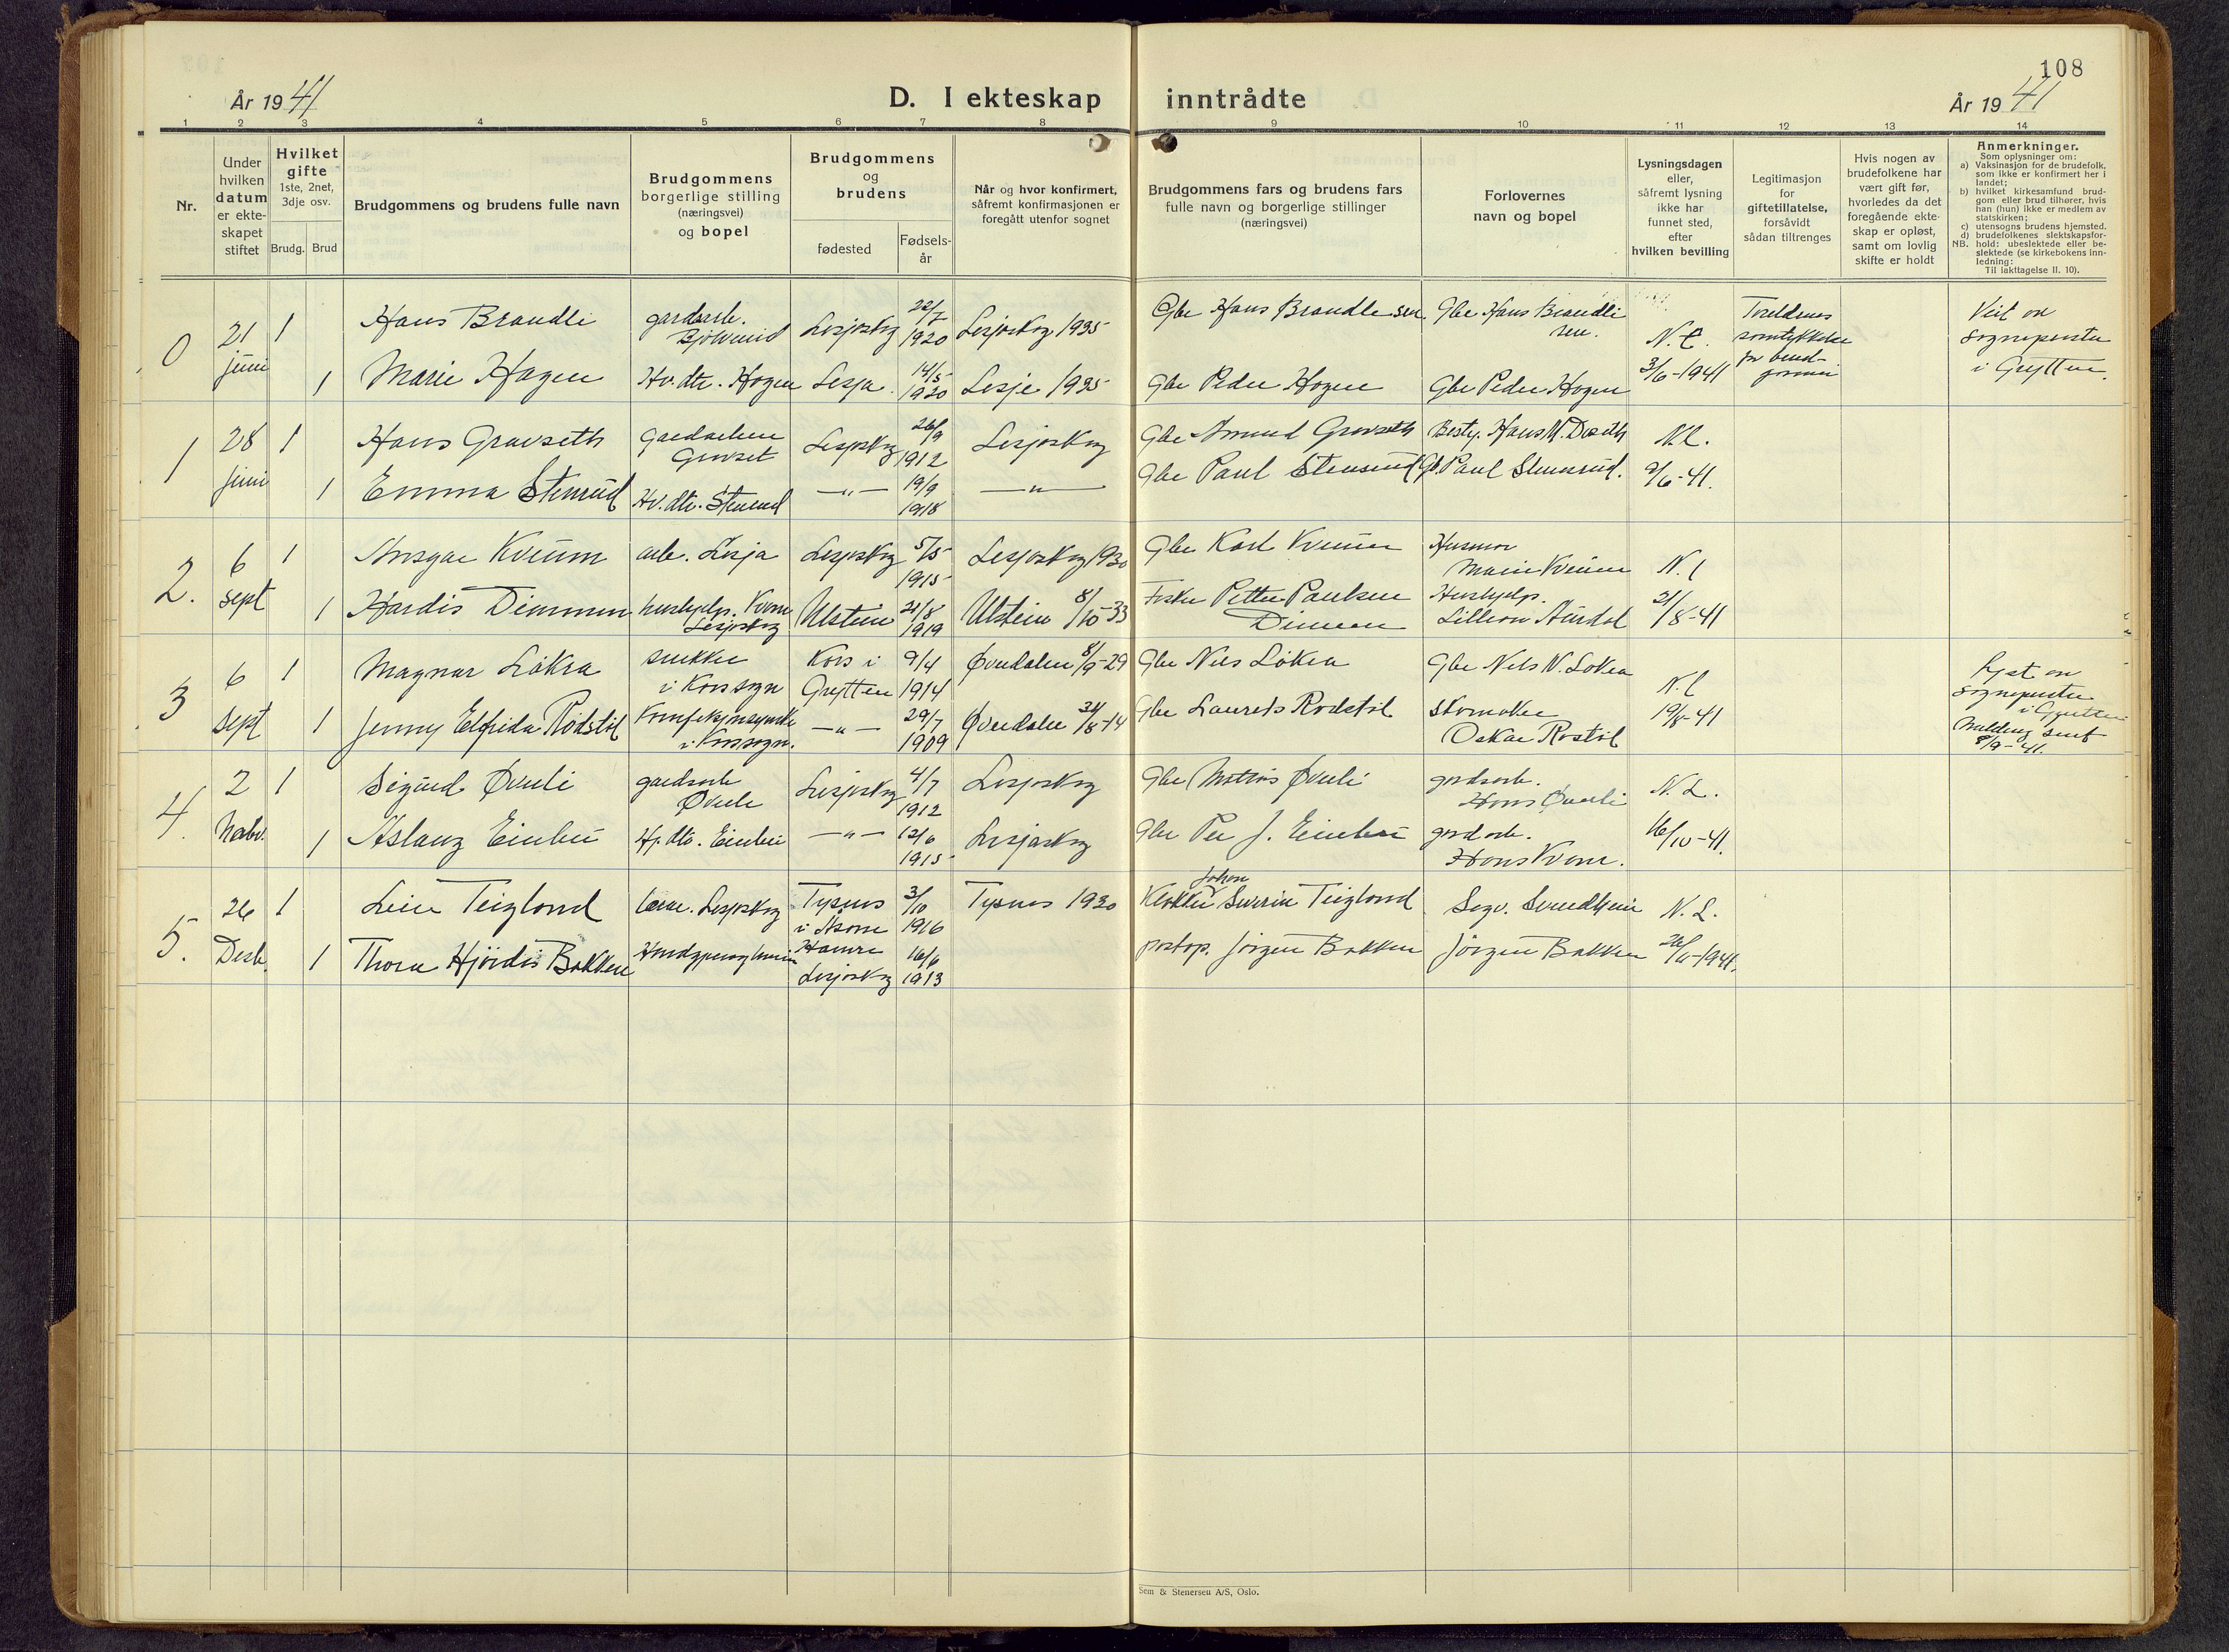 108
År 1941
D. I ekteskap inntrådte
År 1941
1 2 3 4 5 6 7 8 9 10 11 12 13 14
Nr.
Under hvilken datum er ekte-skapet stiftet
Hvilket gifte
1ste, 2net, 3dje osv.
Brudg. Brud
Brudgommens og brudens fulle navn
Brudgommens borgerlige stilling (næringsvei) og bopel
Brudgommens og brudens
fødested
Fødsels-år
Når og hvor konfirmert, såfremt konfirmasjonen er foregått utenfor sognet
Brudgommens fars og brudens fars fulle navn og borgerlige stillinger (næringsvei)
Forlovernes navn og bopel
Lysningsdagen eller, såfremt lysning ikke har funnet sted, efter hvilken bevilling
Legitimasjon for giftetillatelse, forsåvidt sådan tiltrenges
Hvis nogen av brudefolkene har vært gift før, hvorledes da det foregående ekte-skap er opløst, samt om lovlig skifte er holdt
Anmerkninger.
Som oplysninger om:
a) Vaksinasjon for de brudefolk, som ikke er konfirmert her i landet;
b) hvilket kirkesamfund brud-gom eller brud tilhører, hvis han (hun) ikke er medlem av statskirken;
c) utensogns brudens hjemsted.
d) brudefolkenes slektskapsfor-hold: ubeslektede eller be-slektede (se kirkebokens inn-ledning:
NB. Til iakttagelse II. 10).
0 21 juni 1 Hans Brandli gardsarb. Lesjaskog 22/7 1920 Lesjaskog 1935 Gbr Hans Brandli sen. Gbr Hans Brandli sen. N.L. 3/6-1941 Foreldrenes samtykkelse for brud-gommen
i Grytten.
1 Marie Hagen Hv. dtr. Hagen Lesja 14/5 1920 Lesja 1935 Gbr Peder Hagen Gbr Peder Hagen
1 28 juni 1 Hans Gravseth Gravset Lesjaskog 26/9 1912 Lesjaskog Gbr Amund Gravseth N.L. 9/6-41.
1 Emma Stenrud Hv. dtr. Stenrud —"— 19/9 1918 —"— Gbr Paul Stensrud Gb. Paul Stensrud.
2. 6 sept 1 Ansgar Kvam arb. Lesja Lesjaskog 5/5 1915 Lesjaskog 1930 Gbr Karl Kvam Husmor N.L 21/8-41
1 Hardis Dimmen hushjelp. Kvam Lesjaskog Ulstein 21/8 1919 Ulstein 8/10-33 Fisker Petter Paulsen Dimmen Hushjelp. Lillian Aurdal
3 6 sept 1 Magnar Løkra snekker i Kors sogn Kors i Grytten 9/4 1914 Øverdalen 8/9-29 Gbr Nils Løkra Gbr Nils N. Løkra N.L 19/8-41 Lyst av sognepresten i Grytten Melding sent 8/9-41.
1 Jenny Elfrida Rødstøl i Kors sogn. —"— 29/7 1909 Øverdalen Gbr Laurits Rødstøl skomaker Oskar Røstøl
4. 2 Novbr. 1 Sigurd Øverli gardsarb Øverli Lesjaskog 4/7 1912 Lesjaskog Gbr Mathis Øverli gardsarb. Hans Øverli N.L. 16/10-41.
1 Aslaug Einbu Hj. dtr. Einbu —"— 12/6 1915 Lesjaskog Gbr Per J. Einbu gardsarb. Hans Kvam.
5. 26 Desb. 1 Teigland lærer. Lesjaskog Tysnes 3/10 1916 Tysnes 1930 Klokker Johan Severin Teigland N.L. 26/11-1941.
1 Thora Hjördis Bakken Lesjaskog 16/6 1913 postop. Jörgen Bakken Jörgen Bakken
Sem & Stenersen A/S, Oslo.